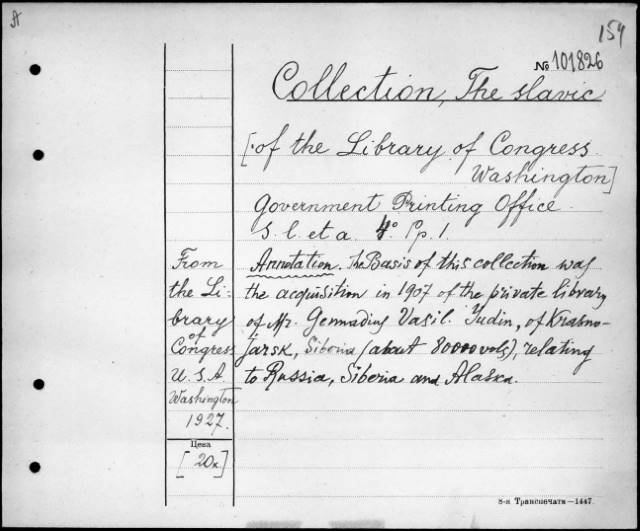 A
154
№ 101826
Collection, The slavic
[of the Library of Congress.
Washington]
Government Printing Office.
S. l. et a. 4°. Pp. 1
From
the Li-
brary
of
Congress
U. S. A.
Washington
1927.
Цена
[20к.]
Annotation. The Basis of this collection was
the acquisition in 1907 of the private library
of Mr. Gennadius Vasil. Yudin, of Krasno-
jarsk, Siberia (about 80000 vols), relating
to Russia, Siberia and Alaska.
8-я Транспечати—1447.